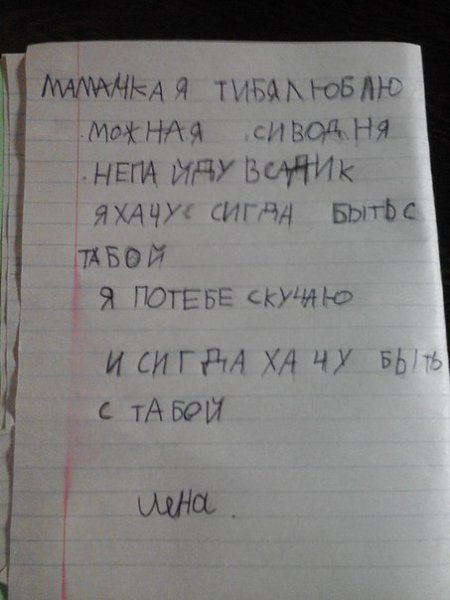 МАМАЧКА Я ТИБЯЛЮБЛЮ
.МОЖНАЯ .СИВОДНЯ
.НЕПАЙДУ ВСАДИК
ЯХАЧУС СИГДА БЫТЬС
ТАБОЙ
Я ПОТЕБЕ СКУЧАЮ
И СИГДА ХАЧУ БЫТЬ
С ТАБОЙ
Лена.